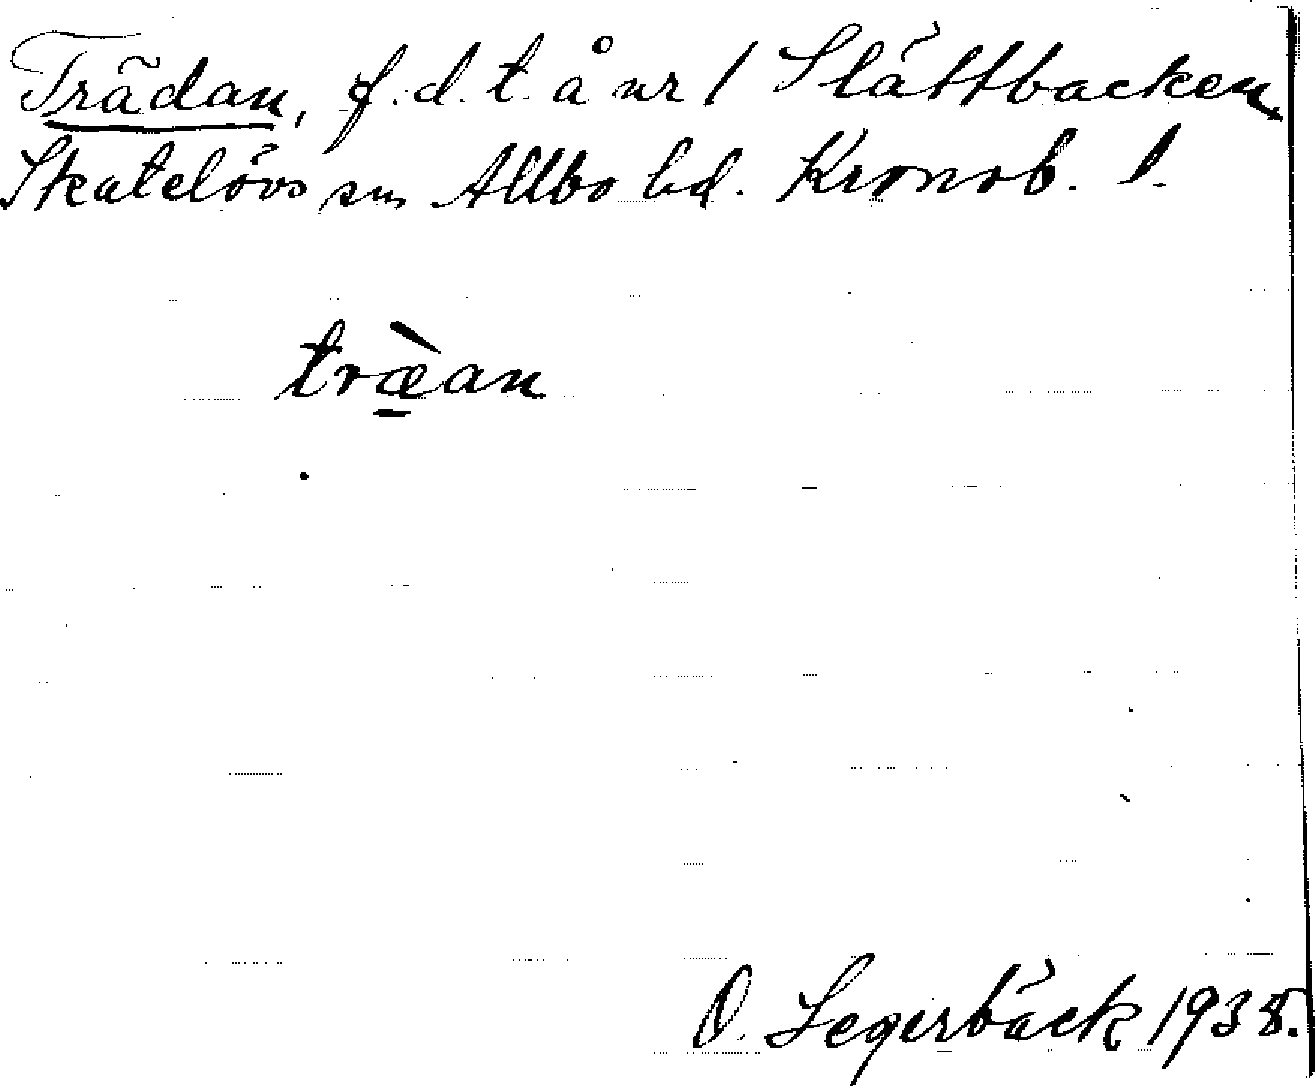 Trädan, f.d.t. å nr 1 Slättbacken
Skatelövs sn Allbo hd. Kronob. l.
træ̱̀an
O. Segerbäck 1938.